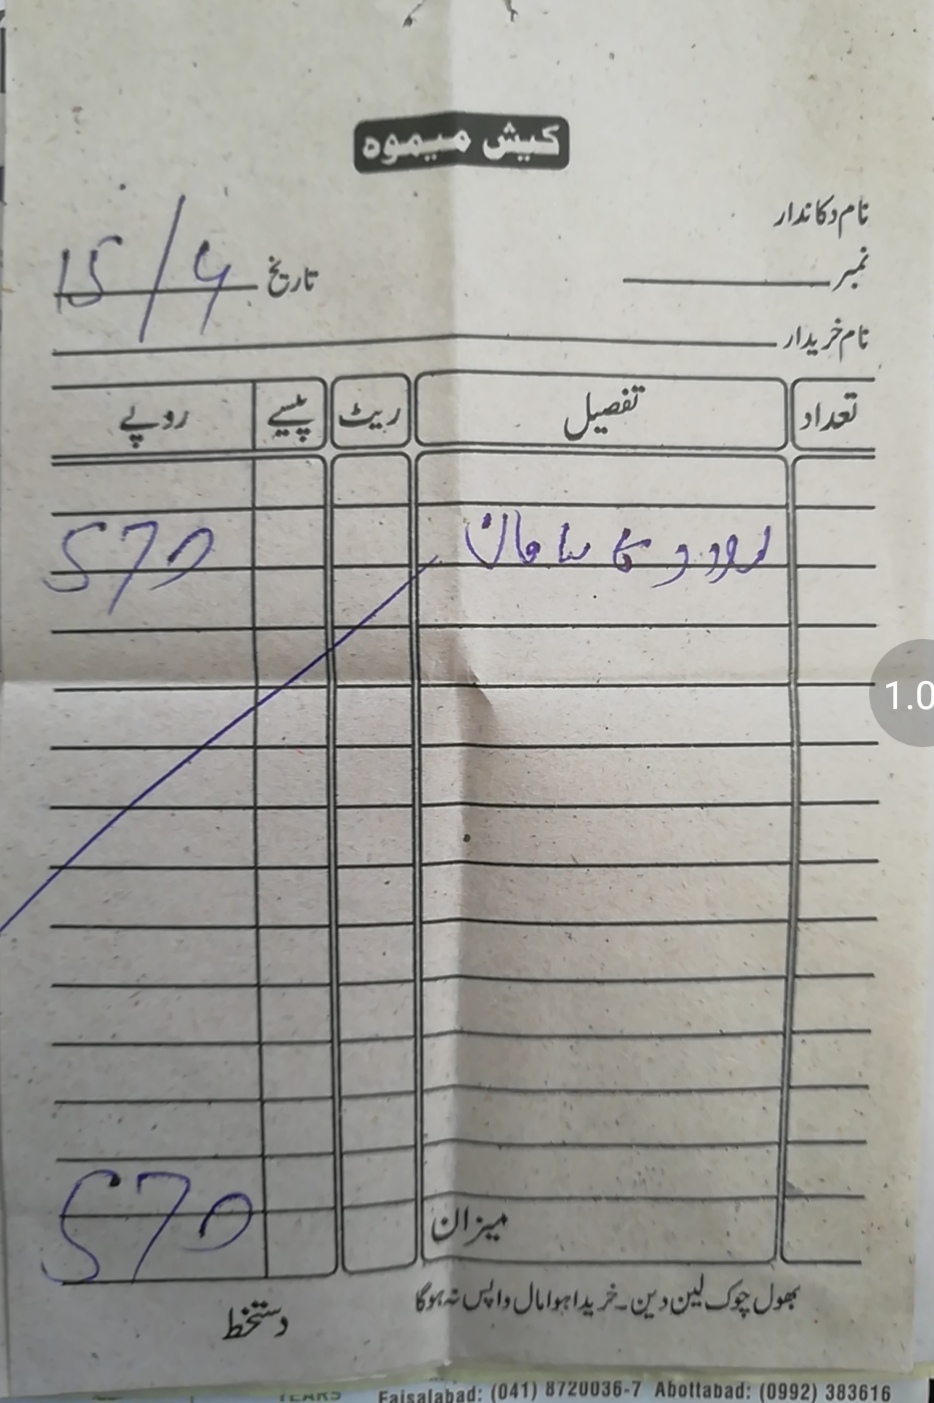 کیش میموہ
نام دکاندار
نمبر
تاریخ 15/4
نام خریدار
تعداد تفصیل ریٹ پیسے روپے
کا سامان 570
میزان 570
بھول چوک لین دین۔خریدا ہوا مال واپس نہ ہوگا
دستخط
YEARS Faisalabad: (041) 8720036-7 Abottabad: (0992) 383616
1.0